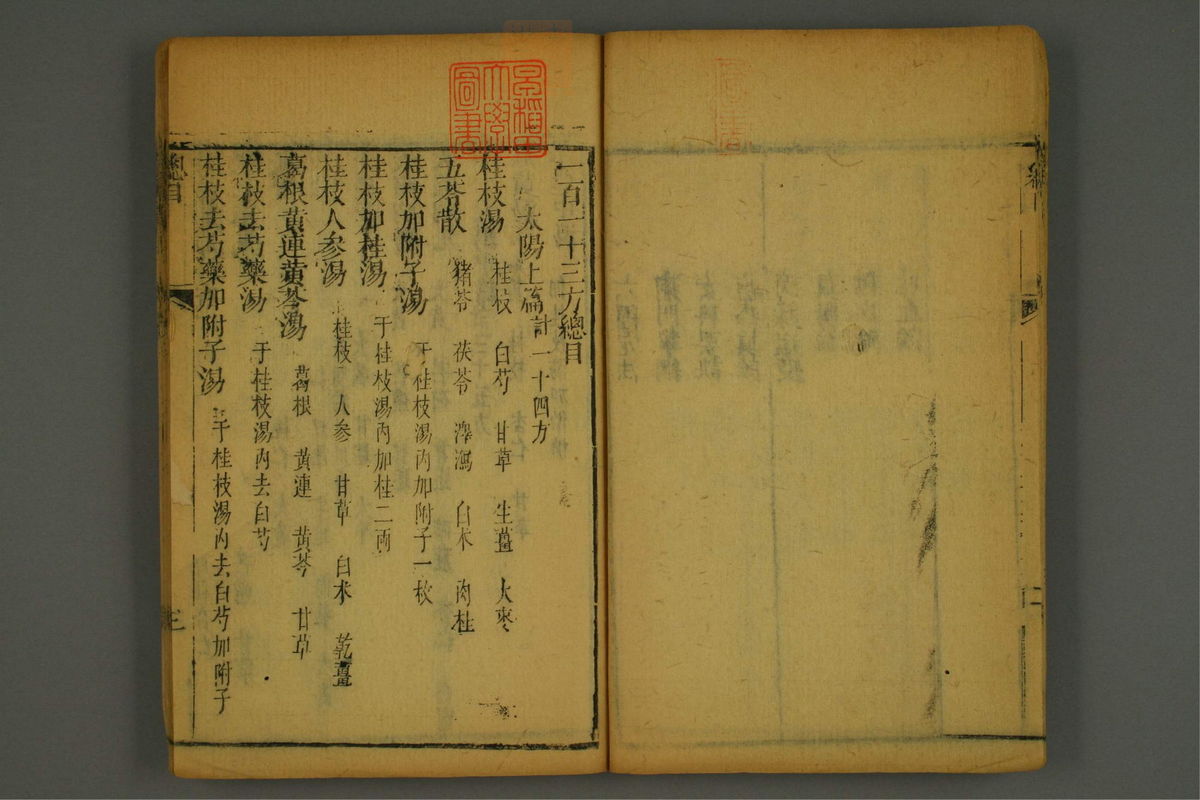 早稲田
大學
圖書
總目
二
一百一十三方總目
太陽上篇計一十四方
桂枝湯 桂枝 白芍 甘草 生薑 大棗
五苓散 猪苓 茯苓 澤瀉 白朮 肉桂
桂枝加附子湯 于桂枝湯內加附子一枚
桂枝加桂湯 于桂枝湯內加桂二兩
桂枝人參湯 桂枝 人參 甘草 白朮 乾薑
葛根黃連黃芩湯 葛根 黃連 黃芩 甘草
桂枝去芍藥湯 于桂枝湯內去白芍
桂枝去芍藥加附子湯 于桂枝湯內去白芍加附子
總目
三